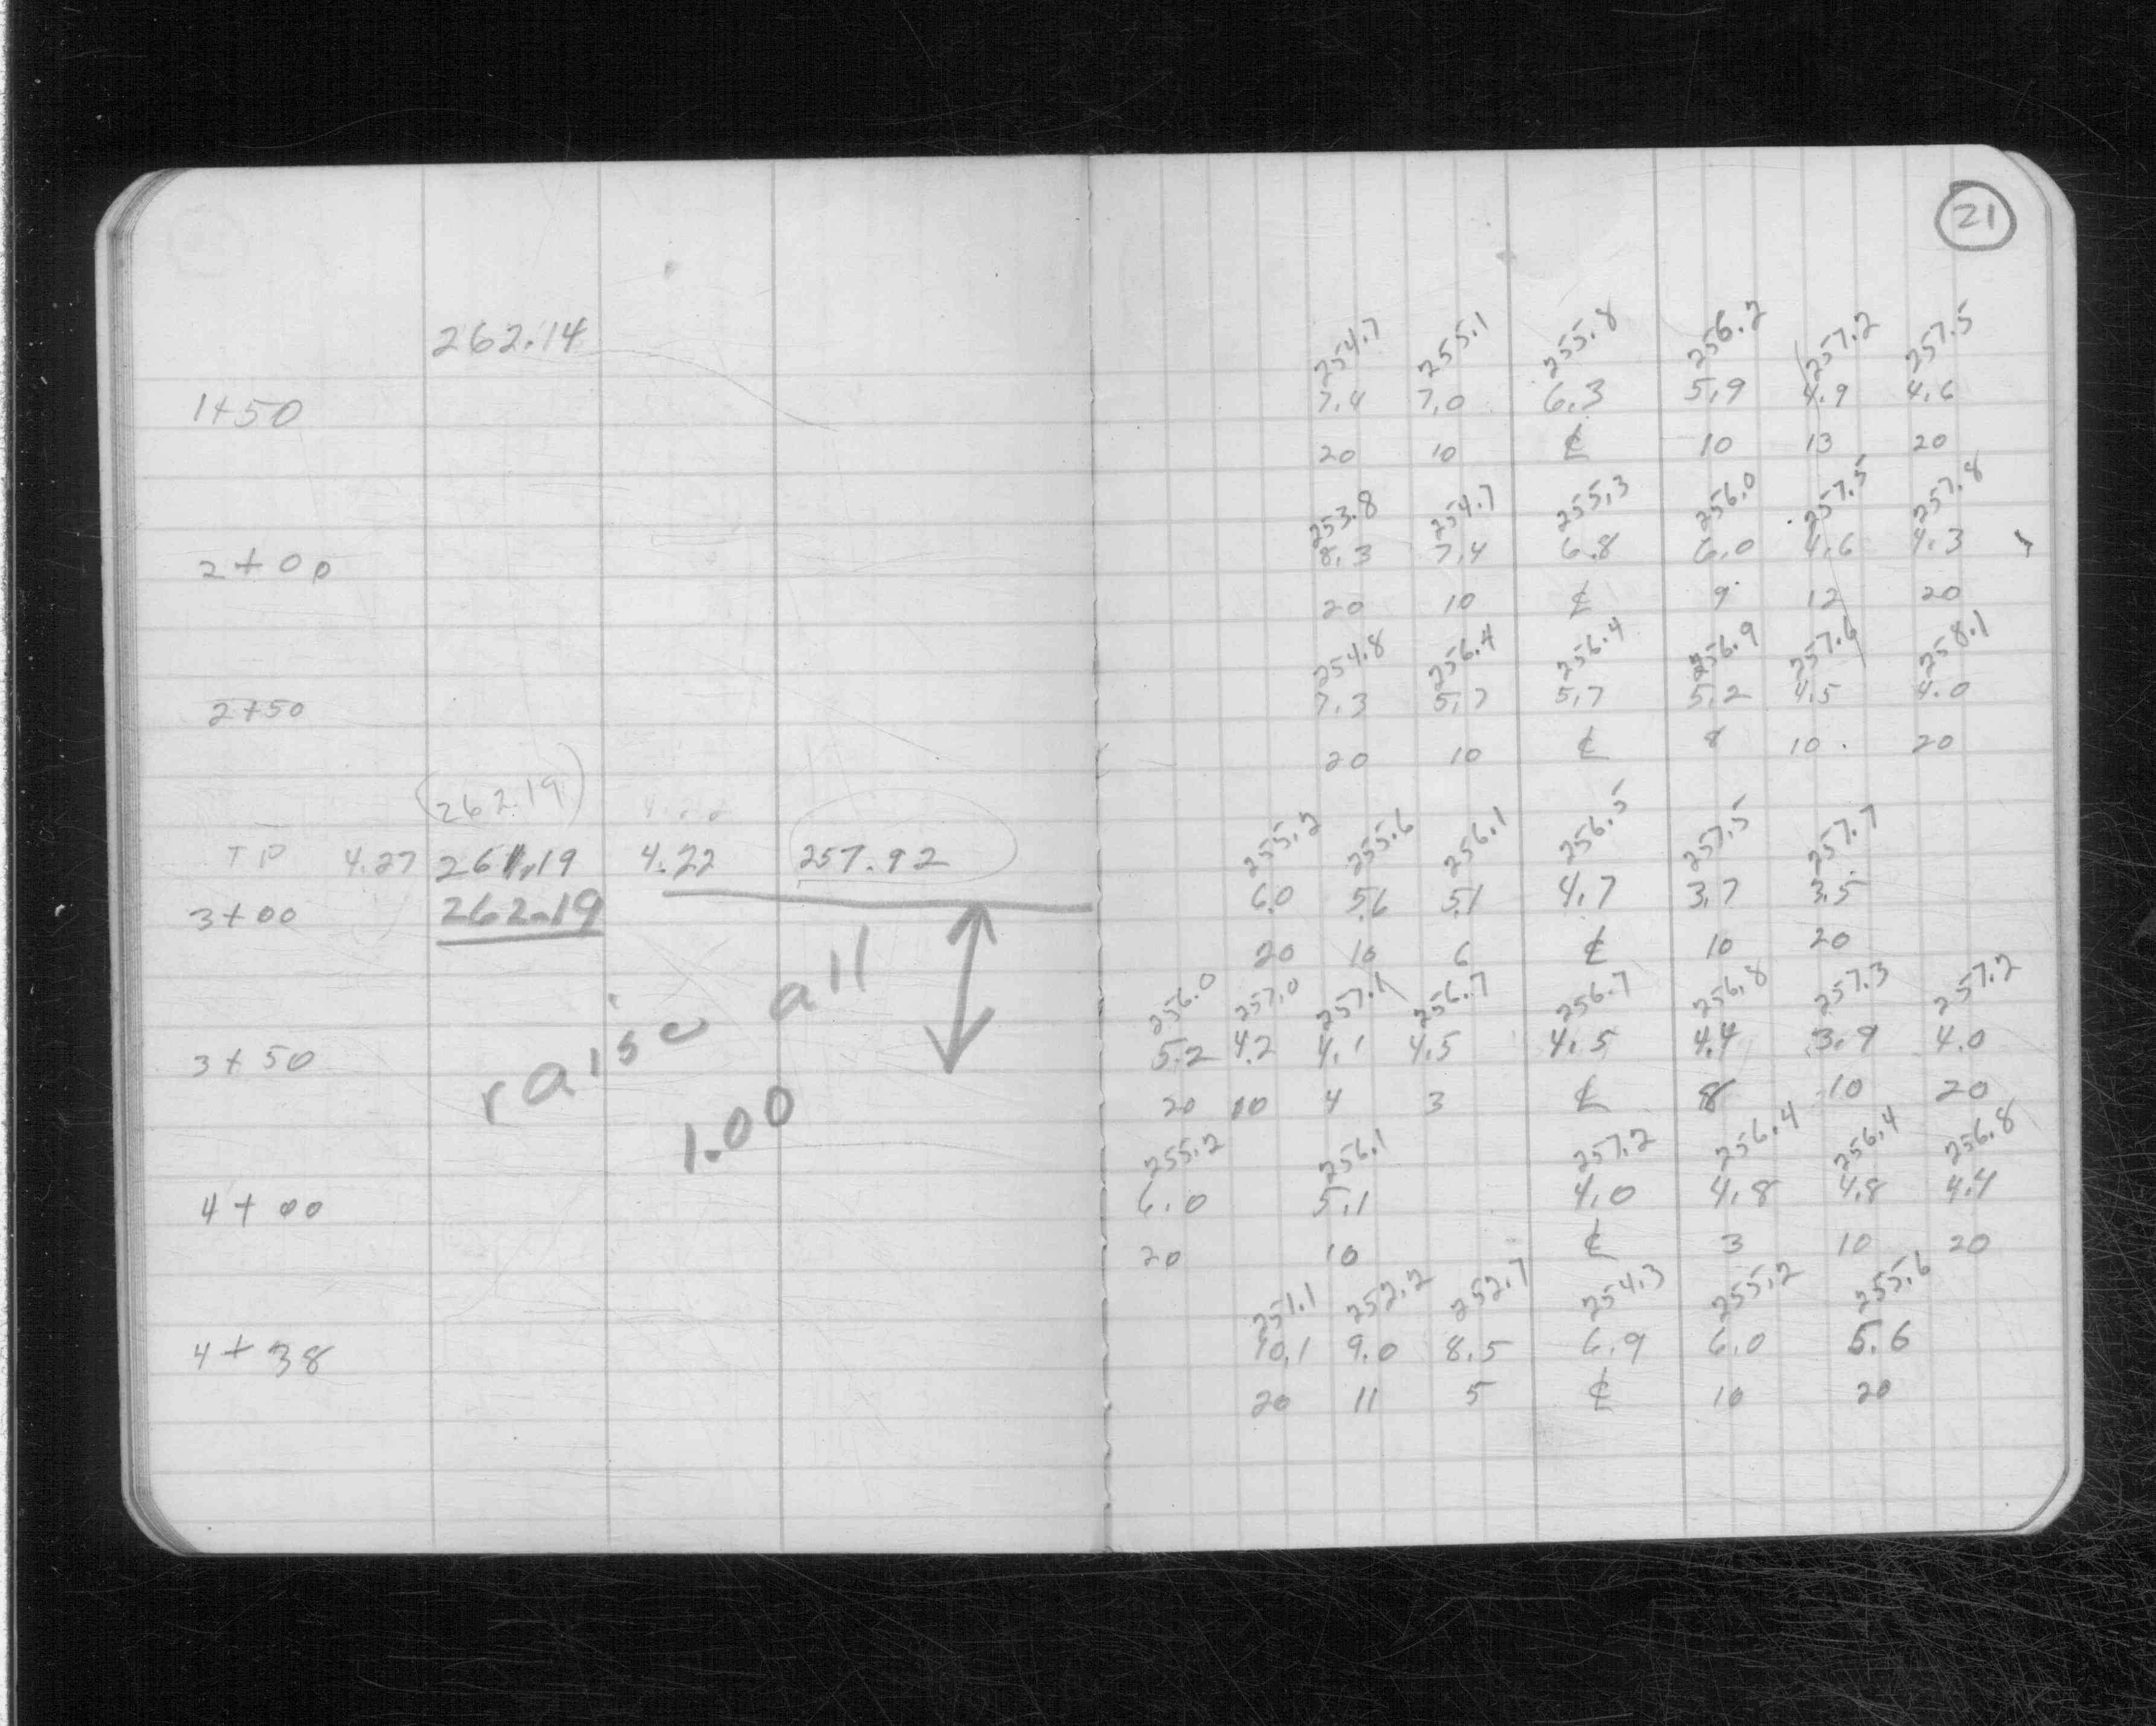 21
262.14
254.7 255.1 255.8 256.2 257.2 257.5
1+50 7.4 7.0 6.3 5.9 4.9 4.6
20 10 ℄ 10 13 20
253.8 254.7 255.3 256.0 257.5 257.8
2+00 8.3 7.4 6.8 6.0 4.6 4.3
20 10 ℄ 9 12 20
254.8 256.4 256.4 256.9 257.6 258.1
2+50 7.3 5.7 5.7 5.2 4.5 4.0
20 10 ℄ 8 10 20
(262.19)
TP 4.27 261.19 4.22 257.92
255.2 255.6 256.1 256.5 257.5 257.7
3+00 262.19 6.0 5.6 5.1 4.7 3.7 3.5
20 10 6 ℄ 10 20
raise all
1.00
256.0 257.0 257.1 256.7 256.7 256.8 257.3 257.2
3+50 5.2 4.2 4.1 4.5 4.5 4.4 3.9 4.0
20 10 4 3 ℄ 8 10 20
255.2 256.1 257.2 256.4 256.4 256.8
4+00 6.0 5.1 4.0 4.8 4.8 4.4
20 10 ℄ 3 10 20
251.1 252.2 252.7 254.3 255.2 255.6
4+38 10.1 9.0 8.5 6.9 6.0 5.6
20 11 5 ℄ 10 20